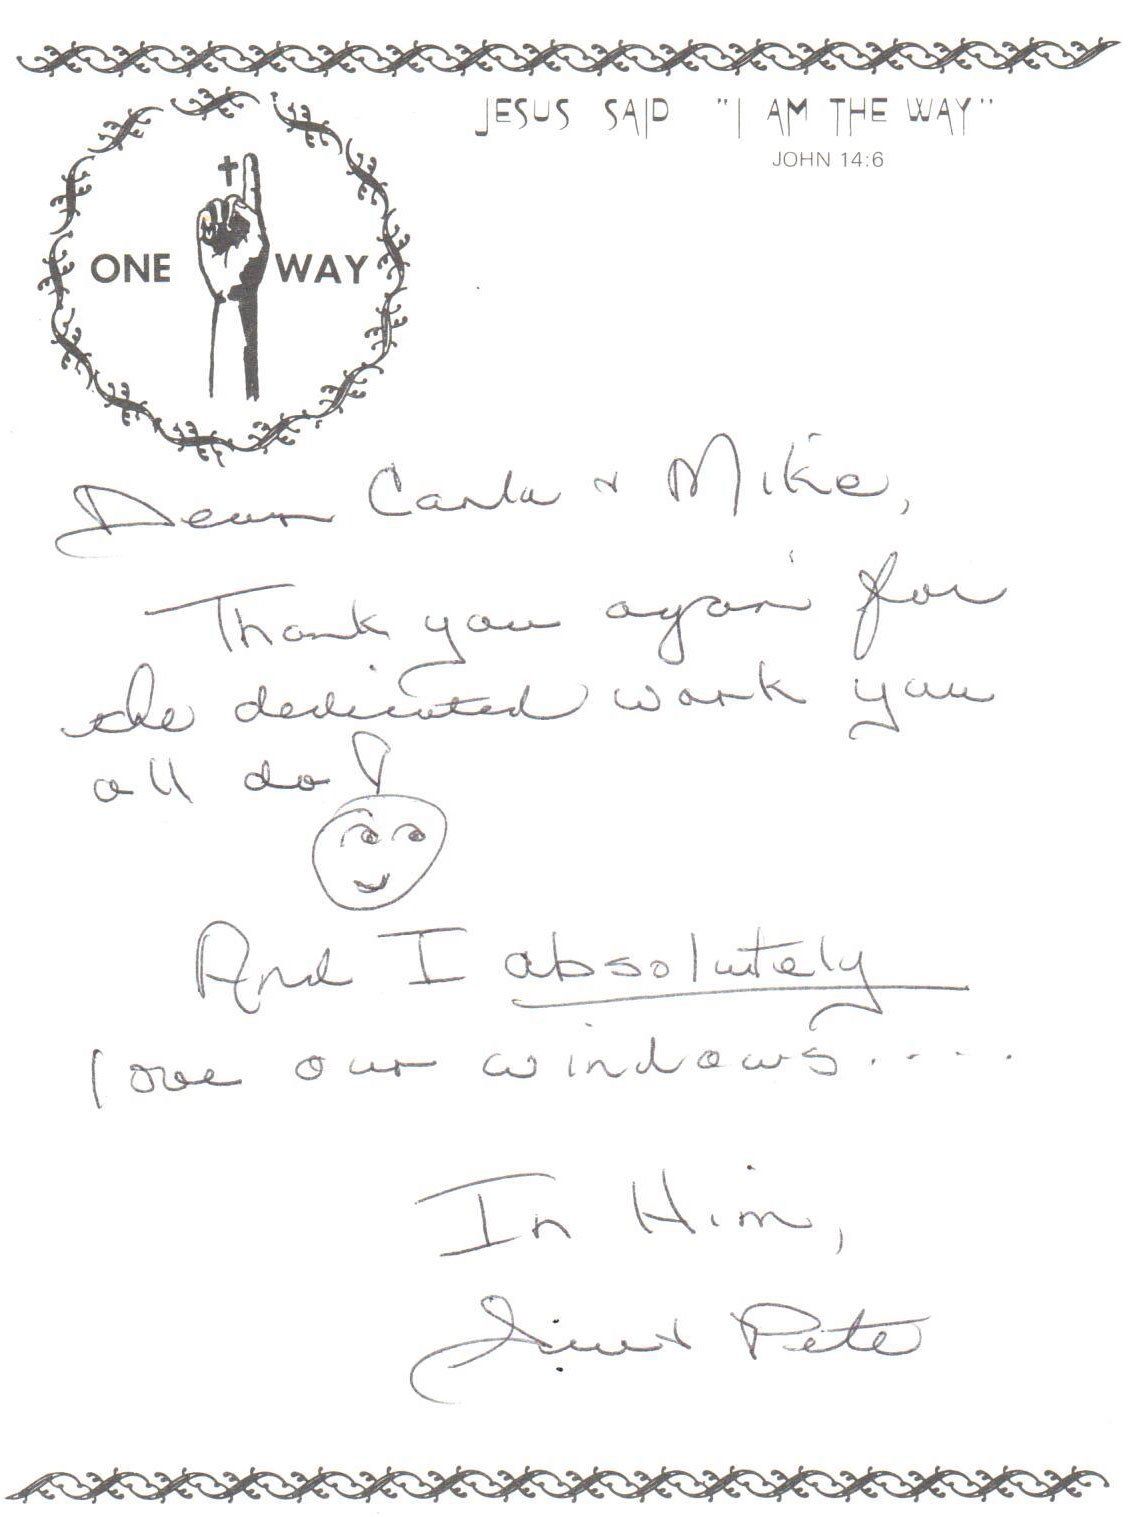 JESUS SAID "I AM THE WAY"
JOHN 14:6
ONE WAY
Dear Carla & Mike,
Thank you again for
the dedicated work you
all do!
And I absolutely
love our windows.....
In Him,
& Pete